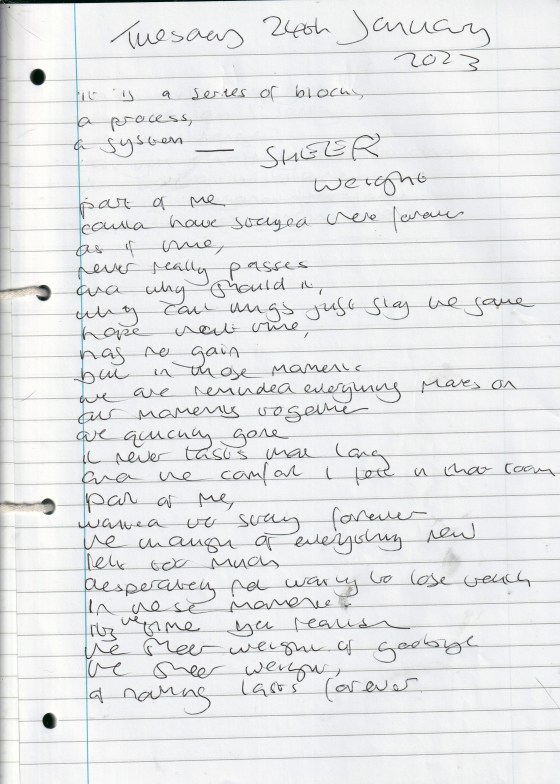 Tuesday 24th January
2023
it is a series of blocks,
a process,
a system — SHEER
weight
part of me
could have stayed there forever
as if time,
never really passes
and why should it,
why can't things just stay the same
hope next time,
has no gain
but in those moments
we are reminded everything moves on
our moments together
are quickly gone
it never lasts that long
and the comfort I felt in that room
part of me,
wanted to stay forever
the of everything new
felt too much
desperately not wanting to lose touch
in these moments.
its the time you realise
the sheer weight of goodbye
the sheer weight,
of nothing lasts forever